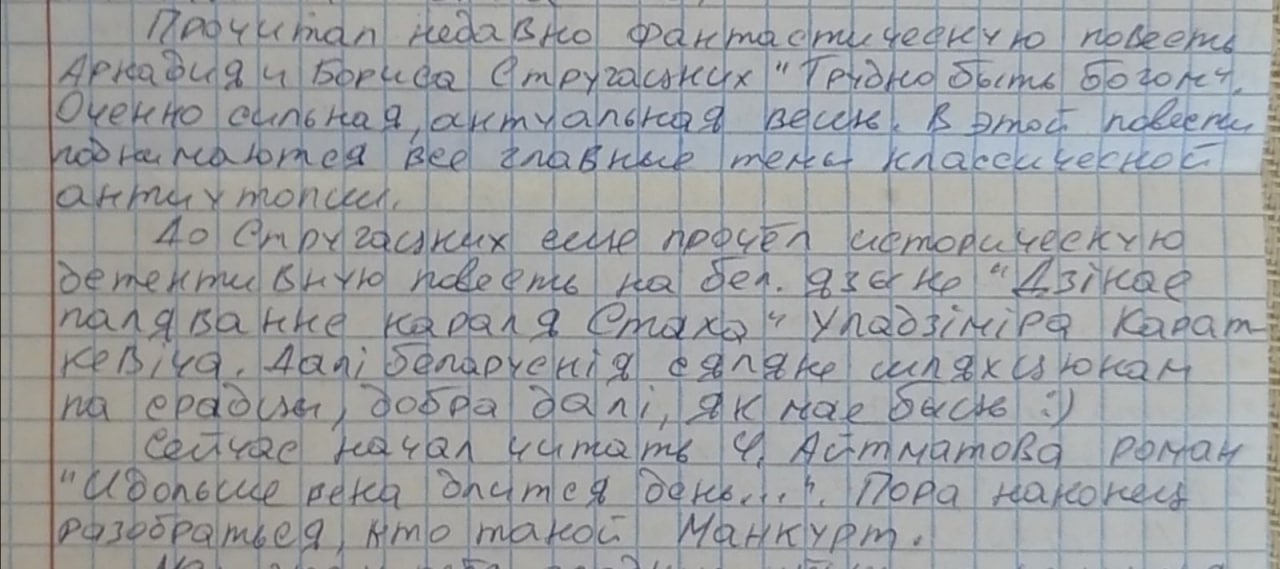 Прочитал недавно фантастическую повесть
Аркадия и Бориса Стругацких "Трудно быть богом".
Оченно сильная, актуальная вещь. В этой повести
поднимаются все главные темы классической
антиутопии.
До Стругацких еще прочёл историческую
детективную повесть на бел. языке "Дзікае
паляванне караля Стаха" Уладзіміра Карат-
кевіча. Далі беларускія сяляне шляхцюкам
па срацы, добра далі, як мае быць :)
Сейчас начал читать Ч. Айтматова роман
"И дольше века длится день...". Пора наконец
разобраться, кто такой Манкурт.